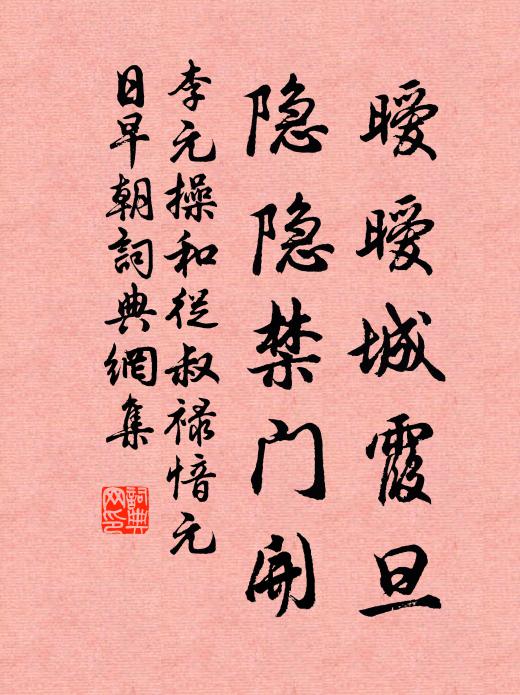 暧暧城霞旦
隐隐禁门开
李元操和從叔祿愔元
日早朝詞典網集
詞典网印